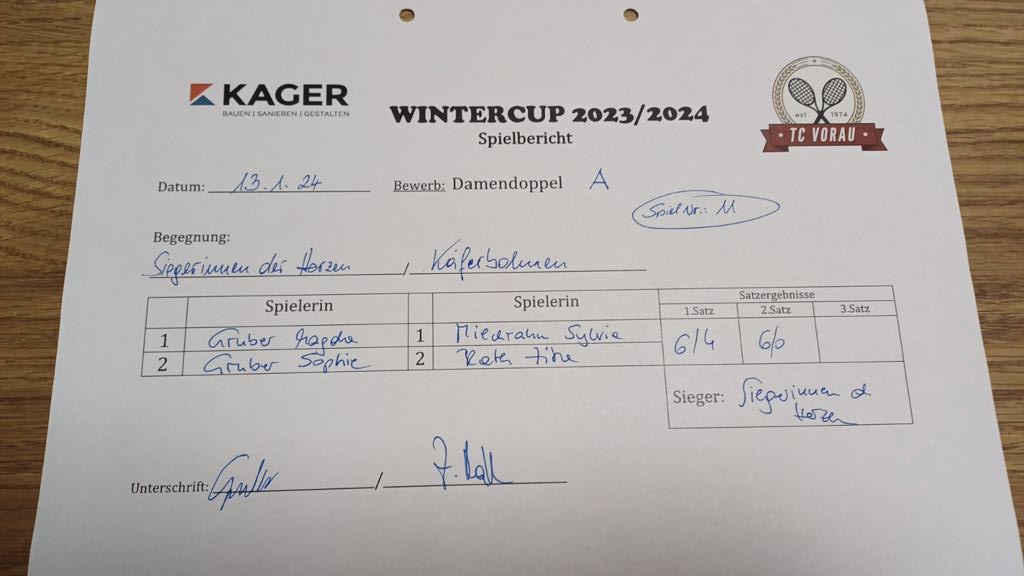 KAGER
BAUEN | SANIEREN | GESTALTEN
WINTERCUP 2023/2024
Spielbericht
est 1974
TC VORAU
Datum: 13.1.24 Bewerb: Damendoppel A
Spiel Nr.: 11
Begegnung:
Siegerinnen der Herzen / Käferbohnen
Spielerin Spielerin Satzergebnisse
1.Satz 2.Satz 3.Satz
1 Gruber Magda 1 Sylvia 6/4 6/0
2 Gruber Sophie 2
Sieger: Siegerinnen d
Herzen
Unterschrift: /